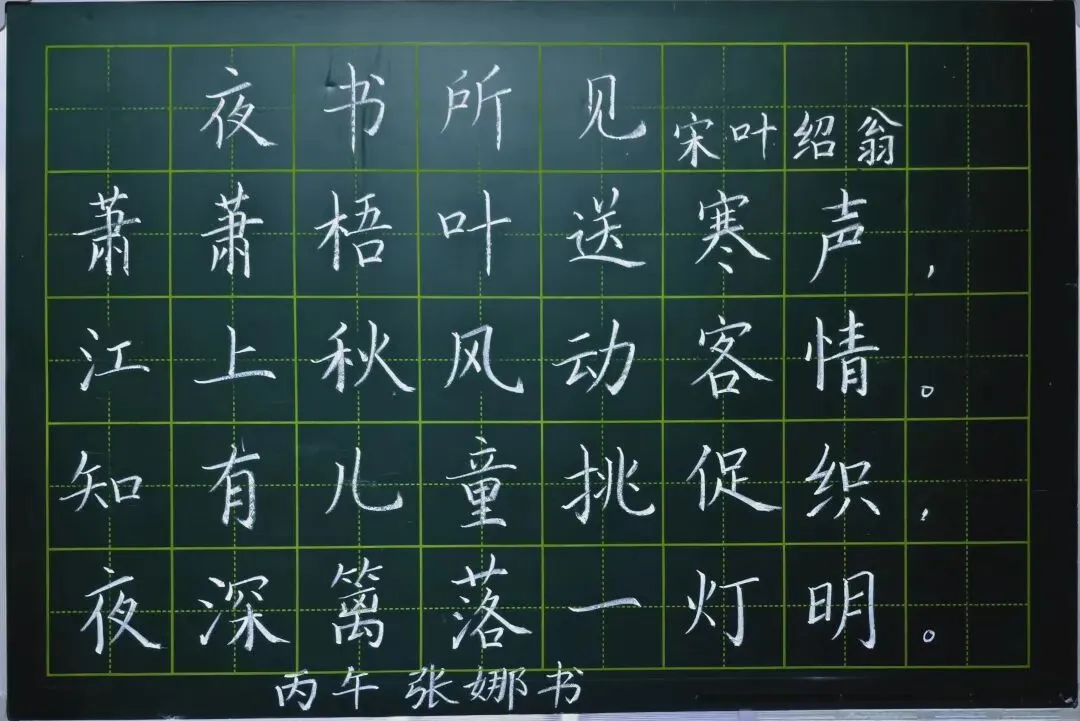 夜书所见 宋叶绍翁
萧萧梧叶送寒声，
江上秋风动客情。
知有儿童挑促织，
夜深篱落一灯明。
丙午 张娜书